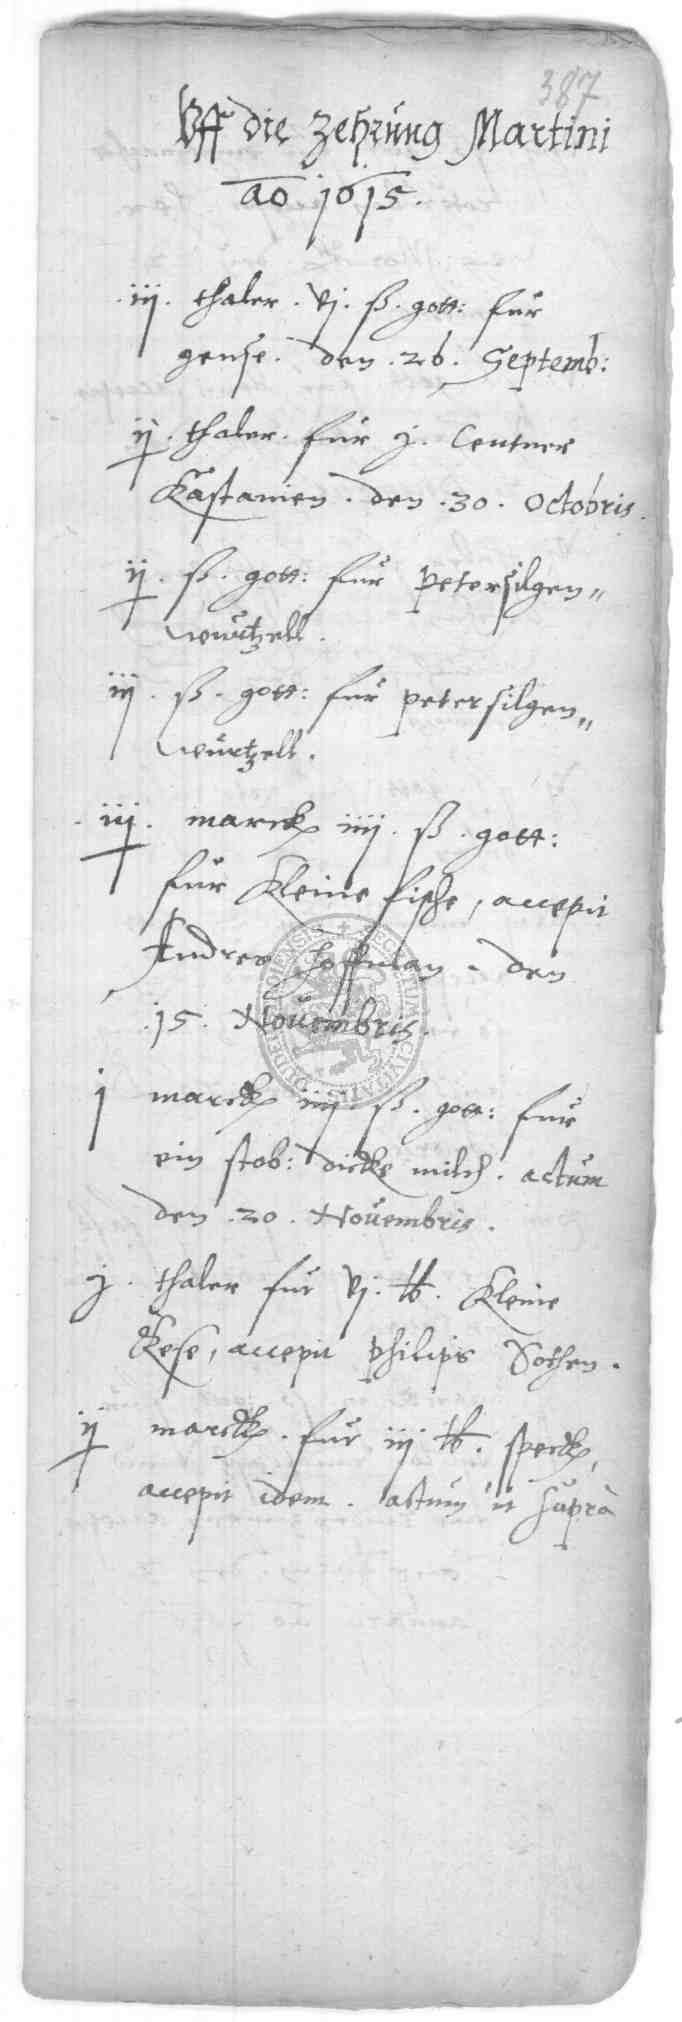 387
Vff die Zehrung Martini
ao 1615.
.iij. thaler. vj. ß. gott: für
gense. den. 26. Septemb:
ij. thaler. für j. Centner
Kastanien. den. 30. Octobris.
ij. ß. gott: für petersilgen„
wurtzell.
iij. ß. gott: für petersilgen„
würtzell.
.iij. marck iiij. ß. gott:
für Kleine fische, accepit
Andres Hoffman. den
.15. Nouembris.
j marck iiij. ß. gott: für
ein stob: dicke milch. actum
den. 20. Nouembris.
j. thaler für vj. lb. Kleine
Kese, accepit Philips Sothen.
ij marck. für iij lb. speck,
accepit idem. actum ut supra